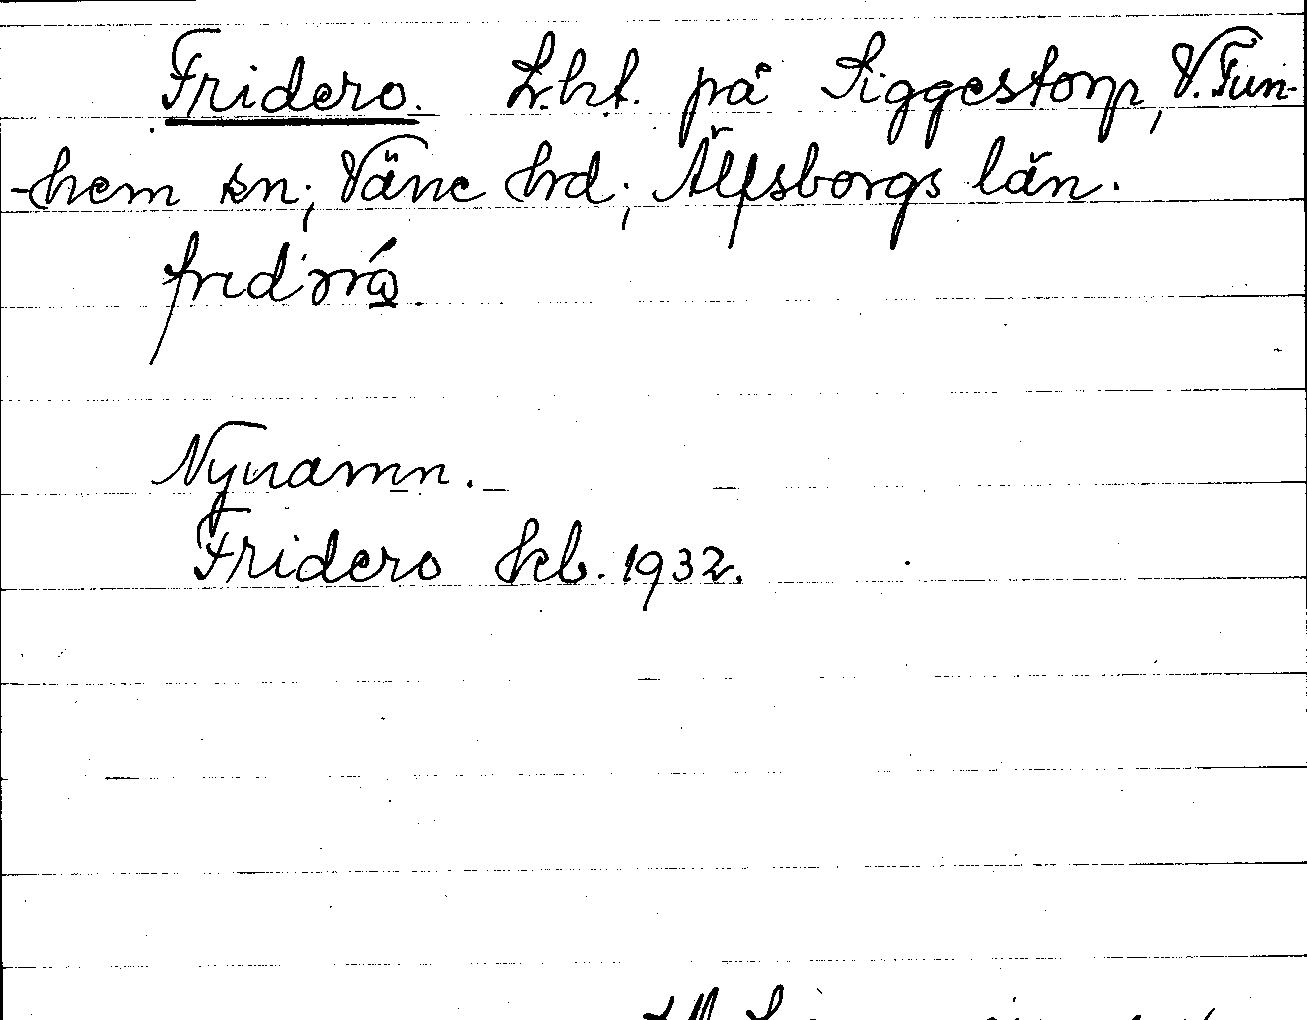 Fridero. L.ht. på Siggestorp, V. Tun-
-hem sn; Väne hrd; Älfsborgs län.
Nynamn.
Fridero hfl. 1932.